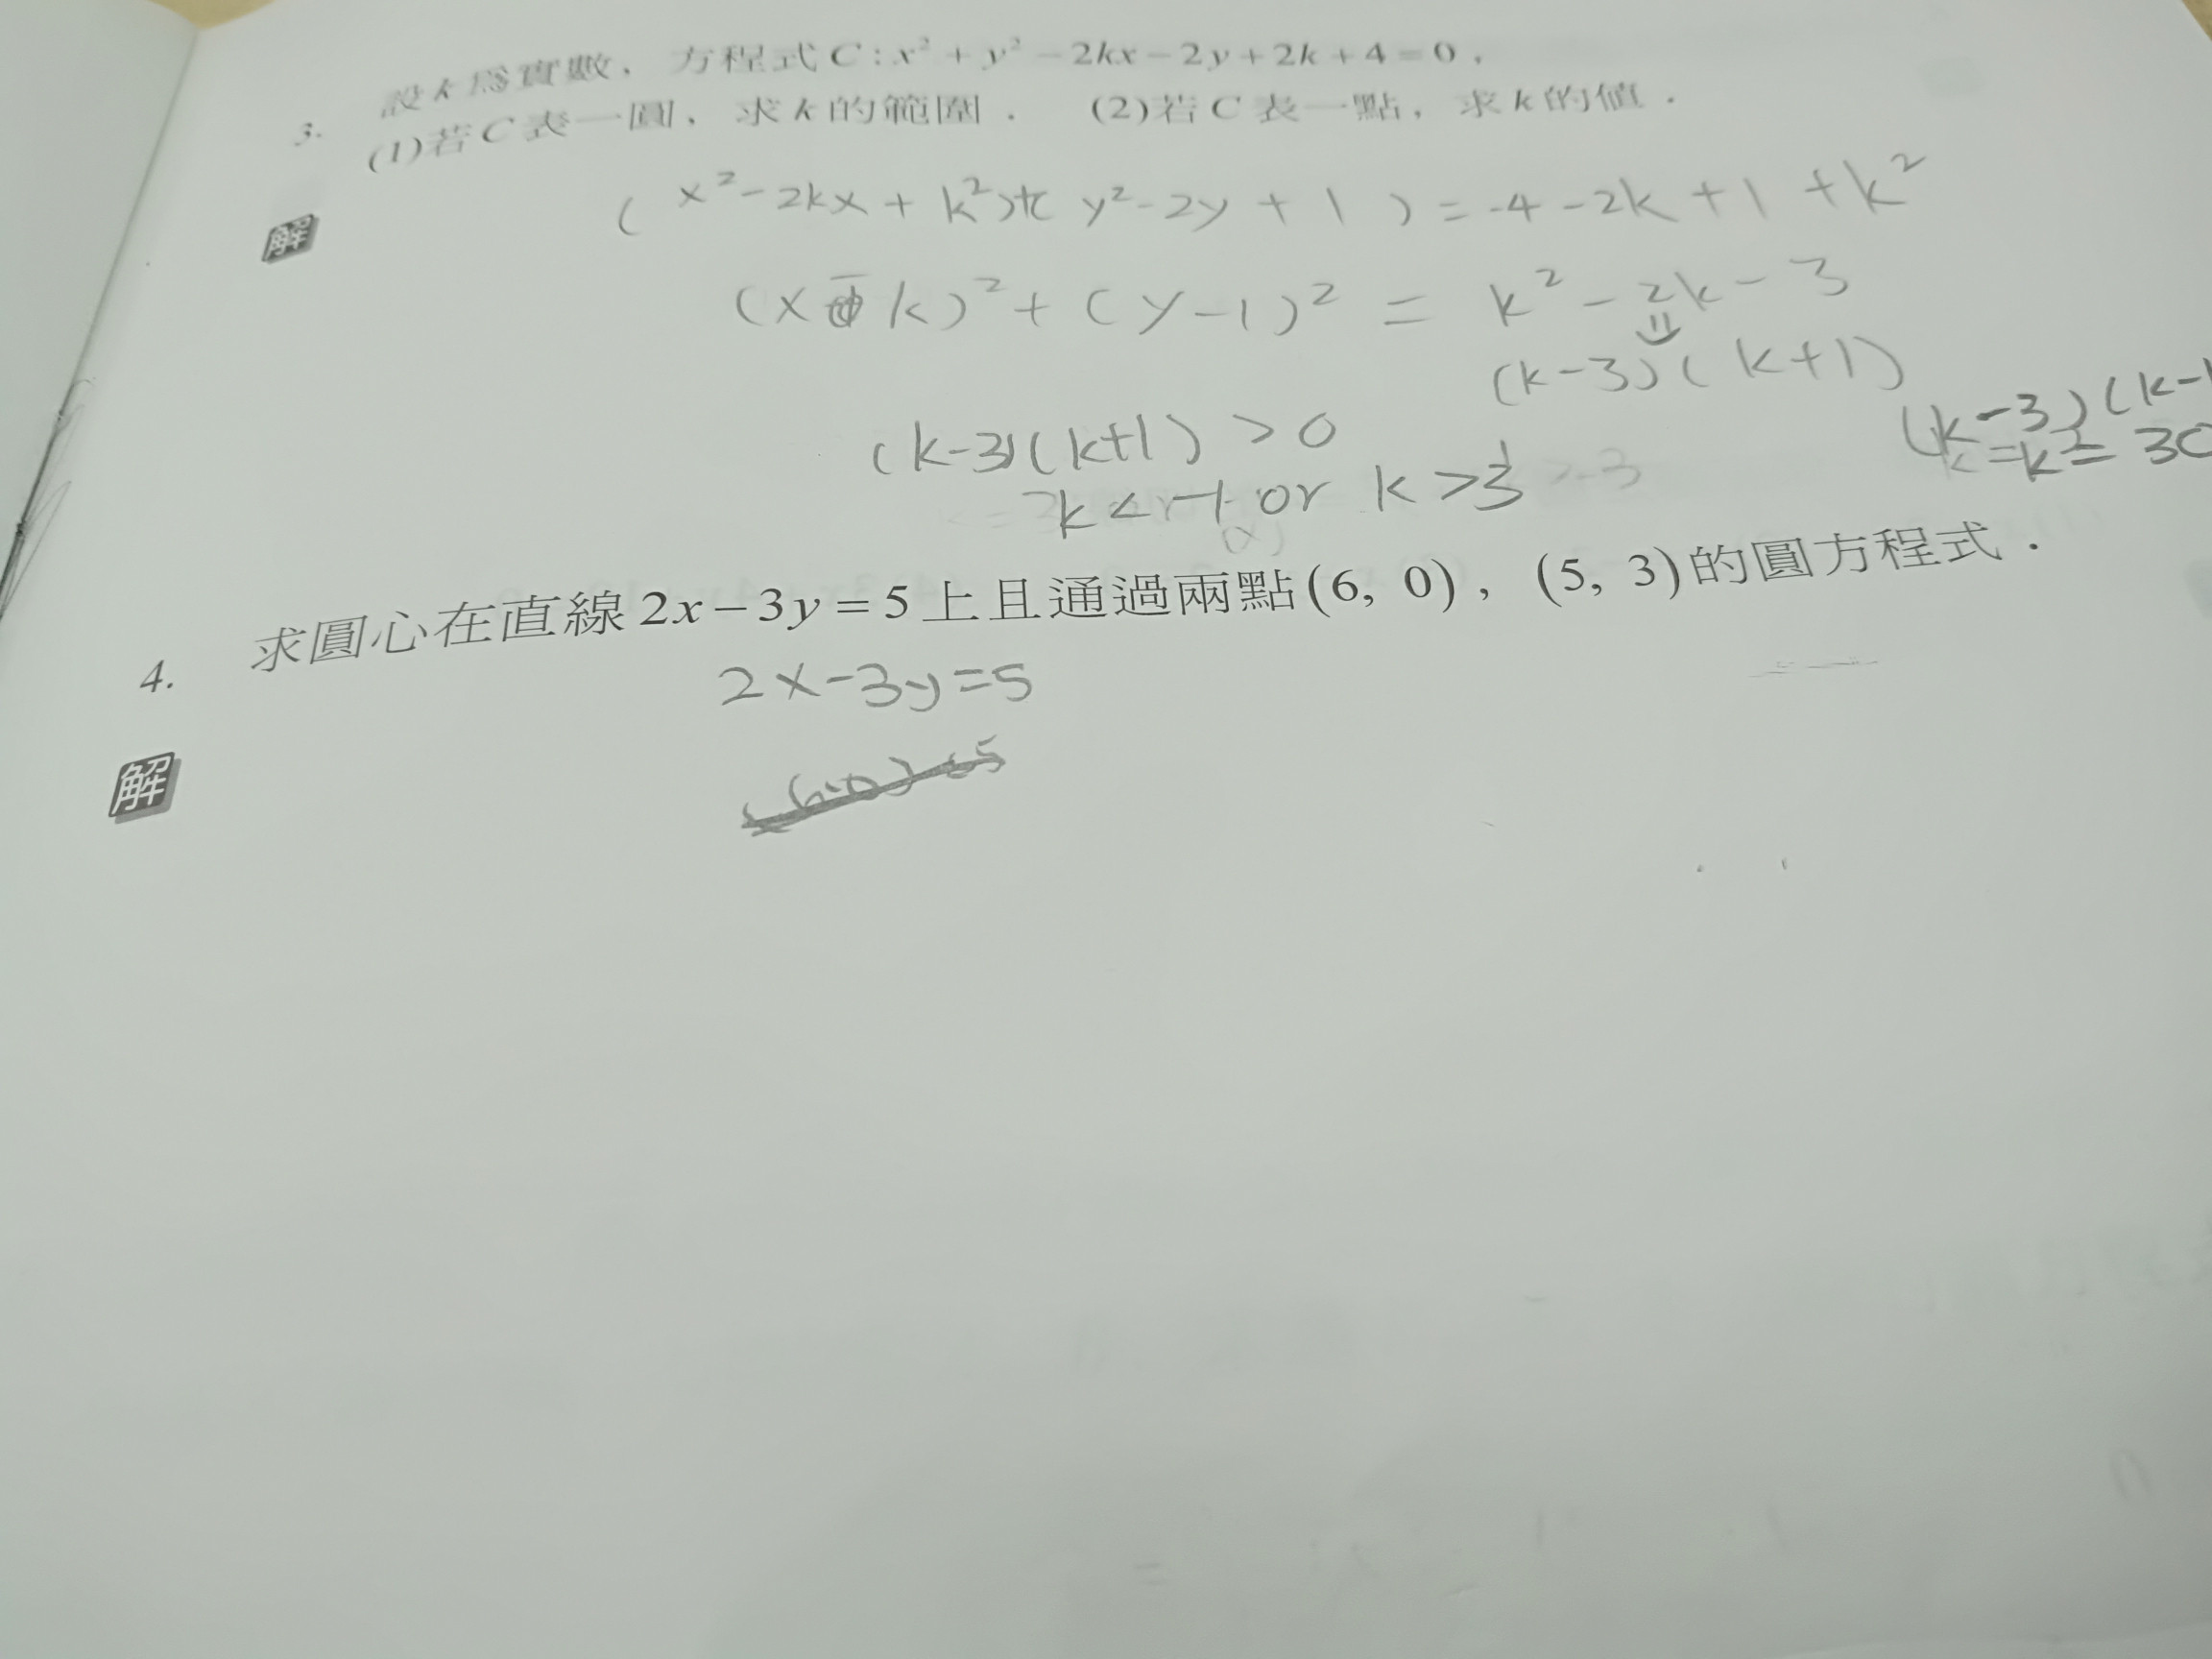 3. 設k為實數，方程式C:x²+y²-2kx-2y+2k+4=0，
(1)若C表一圓，求k的範圍． (2)若C表一點，求k的值．
解
(x²-2kx+k²)+(y²-2y+1)=-4-2k+1+k²
(x-k)²+(y-1)²=k²-2k-3
(k-3)(k+1)
(k-3)(k+1)>0
k<-1 or k>3
(k-3)(k-1
4. 求圓心在直線2x-3y=5上且通過兩點(6, 0)，(5, 3)的圓方程式．
2x-3y=5
解